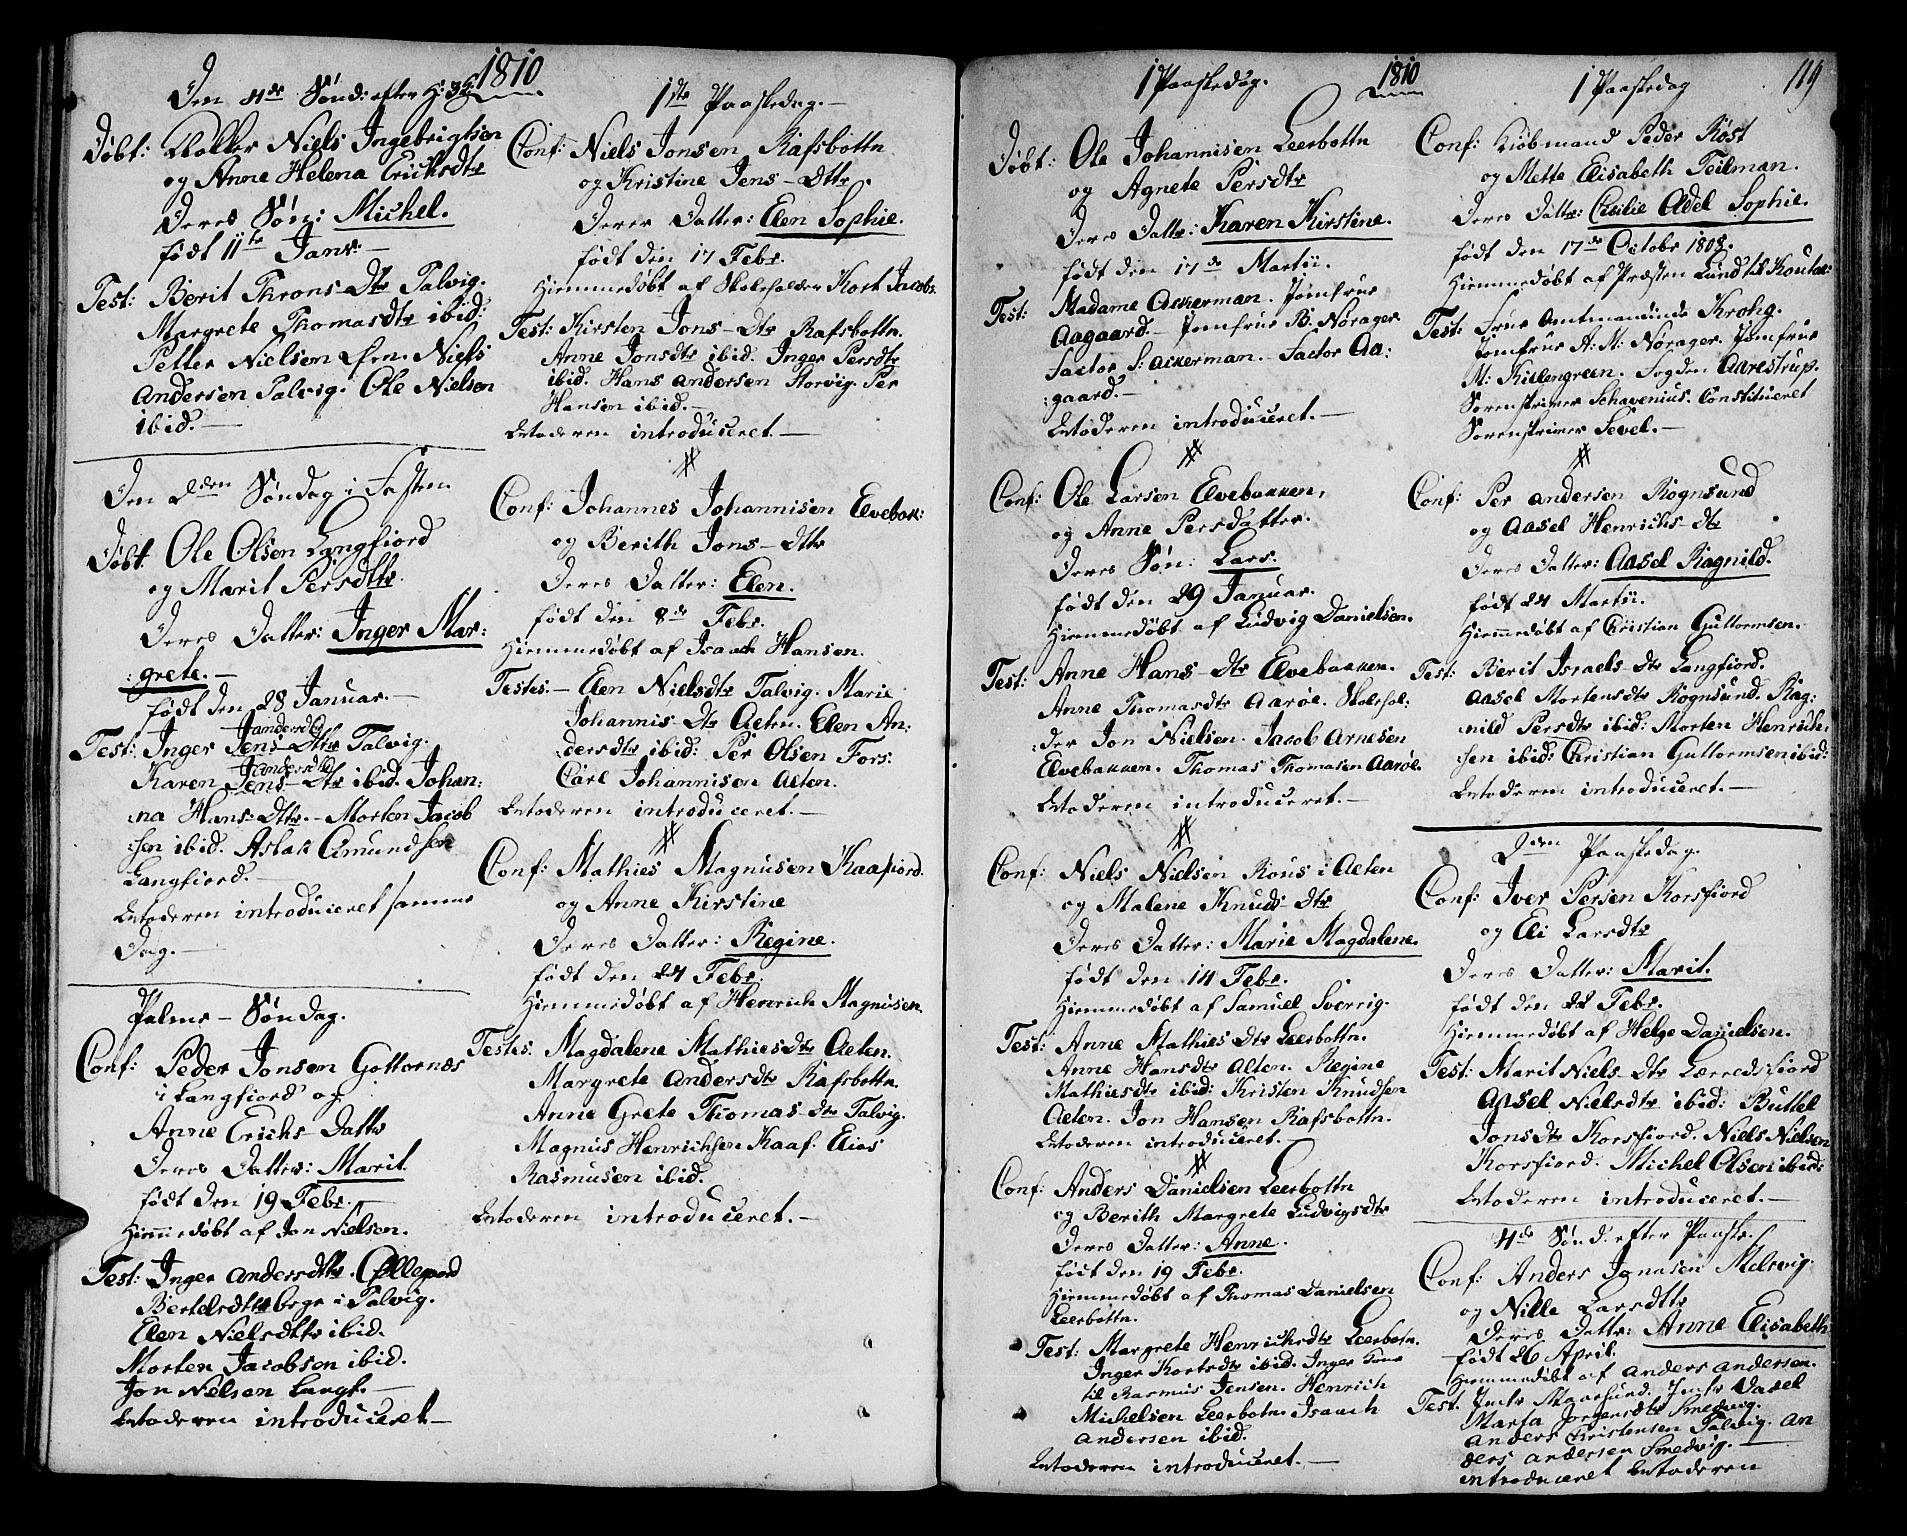 1810
Den 4de Sönd: efter H: 3K:
Döbt: Kloker Niels Ingebrigtsen
og Anne Helena Ericksdtr
Deres Sön: Michel.
födt 11te Janr:
Test: Berit Throns-Dtr Talvig.
Margrete Thomasdtr ibid:
Petter Nielsen ibm. Niels
Andersen Talvig. Ole Nielsen
ibid.
Den 2den Söndag i Fasten
Döbt: Ole Olsen Langfiord
og Marit Persdttr.
Deres Datter: Inger Mar:
:grete.
födt den 28 Januar.
Test: Inger Jens-Dttr Talvig.
Karen Jens-Dtr ibid. Johan:
:na Hans-Dttr. Morten Jacob
:sen ibid. Aslak Amundsen
Langfiord.
Moderen introduceret samme
Dag.
Palme-Söndag.
Conf: Peder Jonsen Gottornæs
i Langfiord og
Anne Erichs-Datter
Deres Datter: Marit
födt den 19 Febr.
Hiemmedöbt af Jon Nielsen.
Test: Inger Andersdttr.
Bertelsdttr bege i Talvig.
Elen Nielsdttr ibid.
Morten Jacobsen ibid.
Jon Nielsen Langf.
Moderen introduceret
1ste Paaskedag.
Conf: Niels Jonsen Rafsbottn
og Kristine Jens-Dttr.
Deres Datter: Elen Sophie.
födt den 17 Febr.
Hiemmedöbt af Skoleholder Kort Jacobs.
Test: Kirsten Jons-Dtr Rafsbottn.
Anne Jonsdtr ibid. Inger Persdtr
ibid. Hans Andersen Storvig. Per
Hansen ibid.
Moderen introduceret.
Conf: Johannes Johannisen Elvebak:
og Berith Jons-Dttr
Deres Datter: Elen.
födt den 8de Febr.
Hiemmedöbt af Isaach Hansen.
Testes.- Elen Nielsdtr Talvig. Marie
Johannis-Dtr Aeten. Elen An:
:dersdtr ibid: Per Olsen Fors:
Carl Johannisen Aeten.
Moderen introduceret.
Conf: Mathies Magnusen Kaafiord.
og Anne Kirstine
Deres Datter: Regine.
födt den 24 Febr.
Hiemmedöbt af Henrich Magnusen.
Testes: Magdalene Mathiesdtr Aeten.
Margrete Andersdtr Rafsbottn.
Anne Grete Thomas-Dtr Talvig.
Magnus Henrichsen Kaaf: Elias
Rasmusen ibid.
Moderen introduceret.
1 Paaskedag.
1810
Döbt: Ole Johannisen Leerbottn
og Agnete Persdtr
Deres Dattr: Karen Kirstine.
födt den 17de Martii.
Test: Madame Ackerman. Jomfrue
Aagaard. Jomfrue B. Norager
Factor S: Ackerman. Factor Aa:
:gaard.
Moderen introduceret.
Conf: Ole Larsen Elvebakken,
og Anne Persdatter.
Deres Sön: Lars.
födt den 29 Januar.
Hiemmedöbt af Ludvig Danielsen.
Test: Anne Hans-Dtr Elvebakken.
Anne Thomasdtr Aaröe. Skolehol:
:der Jon Nielsen. Jacob Arnesen
Elvebakken. Thomas Thomasen Aaröe.
Moderen introduceret.
Conf: Niels Nielsen Rous i Aeten
og Malene Knuds Dtr
Deres Datter: Marie Magdalene.
födt den 14 Febr.
Hiemmedöbt af Samuel Sverrig.
Test: Anne Mathies Dtr Leerbottn.
Anne Hansdtr Alten. Regine
Mathiesdtr ibid: Kristen Knudsen
Aeten. Jon Hansen Rafsbottn.
Moderen introduceret.
Conf: Anders Danielsen Leerbottn
og Berith Margrete Ludvigsdtr
Deres Datter: Anne.
födt den 19 Febr.
Hiemmedöbt af Thomas Danielsen
Leerbottn.
Test: Margrete Henrichsdtr Leerbotn.
Inger Kortsdtr ibid. Inger Kone
til Rasmus Jensen. Henrich
Michelsen Leerbotn. Isaach
Andersen ibid.
Moderen introduceret.
1 Paaskedag
119
Conf: Kiöbmand Peder Röst
og Mette Elisabeth Feilman.
Deres Datter: Cecilie Adel Sophie.
födt den 17de Octobr 1808.
Hiemmedöbt af Præsten Lund til Koutok:
Test: Frue Amtmandinde Krohg.
Jomfrue A: M: Norager. Jomfrue
M: Killengreen. Fogden Aarestrup.
Sorenskriver Schavenius. Constitueret
Sorenskriver Fevel.
Conf: Per Andersen Rognsund
og Aasel Henrichs-dtr
Deres Datter: Aasel Ragnild.
födt 24 Martii.
Hiemmedöbt af Christian Guttormsen.
Test: Berit Israels-Dtr Langfiord.
Aasel Mortensdtr Rognsund. Rag:
:nild Persdtr ibid: Morten Henrich:
:sen ibid: Christian Guttormsen ibid:
Moderen introduceret.
2den Paaskedag.
Conf: Iver Persen Korsfiord
og Eli Larsdtr
Deres Datter: Marit.
födt den 22 Febr.
Hiemmedöbt af Helge Danielsen.
Test: Marit Niels-Dtr Lerredsfiord
Aasel Nielsdtr ibid: Buttel
Jonsdtr Korsfiord. Niels Nielsen
Korsfiord. Michel Olsen ibid:
Moderen introduceret.
4de Sönd: efter Paaske.
Conf: Anders Jonasen Melsvig.
og Nille Larsdttr
Deres Dattr: Anne Elisabeth
födt 26 April.
Hiemmedöbt af Anders Andersen.
Test. Jmfr Maarsund. Jmfr Daael
Marta Jörgensdtr Smedvig.
Anders Christensen Talvig. An
ders Andersen Smedvig.
introduceret Moderen